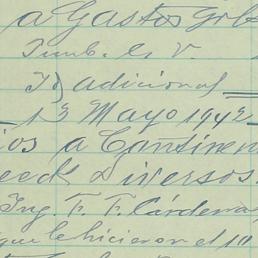 a Gastos Grl
Timb. C. V.
Id adicional
13 Mayo 1942
ios a Continen
eeds Diversos
Ing. F. F. Cárdenas
que le hicieron el 1º